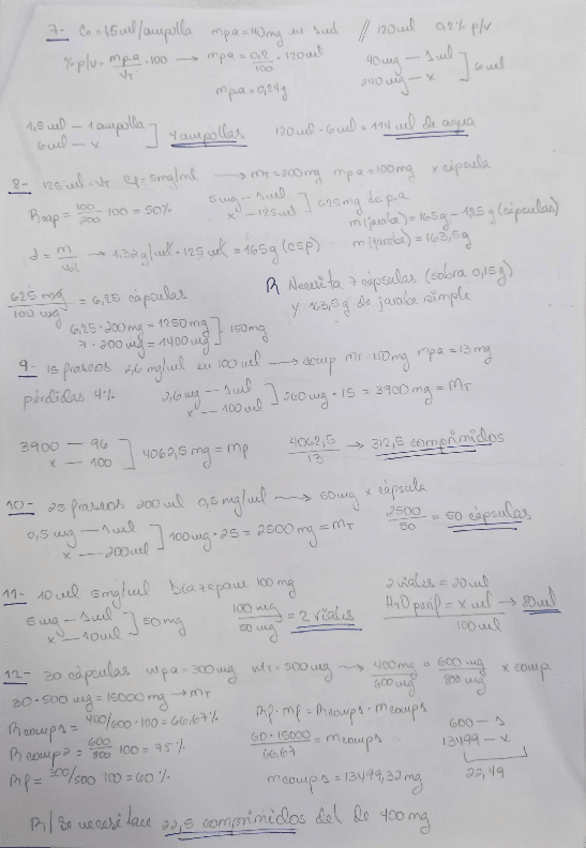 7- Co = 1,5 ml/ampolla mpa = 40mg en 1ml // 120ml 0,2% p/v
% p/v = mpa/VT · 100 → mpa = 0,2/100 · 120ml
40mg — 1ml
240mg — x ] 6ml
mpa = 0,24g
1,5ml — 1 ampolla
6ml — x ] 4 ampollas 120ml - 6ml = 114 ml de agua
8- 125ml = VT Cf = 5mg/ml → MT = 200mg mpa = 100mg x cápsula
Rcap = 100/200 · 100 = 50%
5mg — 1ml
x — 125ml ] 625mg de p.a
m(jarabe) = 165g - 1,25g (cápsulas)
m(jarabe) = 163,5g
d = m/vol → 1.32g/ml · 125 ml = 165g (csp)
625 mg/100 mg = 6,25 cápsulas
R Necesita 7 cápsulas (sobra 0,15g)
y 163,5g de jarabe simple
6,25 · 200mg = 1250mg
7 · 200mg = 1400mg } 150mg
9- 15 frascos 2,6mg/ml en 100 ml → comp MT = 150mg mpa = 13mg
pérdidas 4%
2,6mg — 1ml
x — 100ml ] 260mg · 15 = 3900mg = MT
3900 — 96
x — 100 ] 4062,5mg = Mp
4062,5/13 → 312,5 comprimidos
10- 25 frascos 200ml 0,5mg/ml → 50mg x cápsula
0,5mg — 1ml
x — 200ml ] 100mg · 25 = 2500mg = MT
2500/50 = 50 cápsulas
11- 10ml 5mg/ml Diazepam 100mg
5mg — 1ml
x — 10ml ] 50mg
100 mg/50 mg = 2 viales
2 viales = 20ml
H2O purif = x ml → 80ml
100ml
12- 30 cápsulas mpa = 300mg MT = 500mg → 400mg/600mg o 600mg/800mg x comp.
30 · 500 mg = 15000mg → MT
Rcomp1 = 400/600 · 100 = 66,67%
Rcomp2 = 600/800 · 100 = 75%
Rf = 300/500 · 100 = 60%
Rf · Mf = Rcomp1 · mcomp1
60 · 15000/66,67 = mcomp1
mcomp1 = 13499,32mg
600 — 1
13499 — x
22,49
R/ Se necesitan 22,5 comprimidos del de 400mg